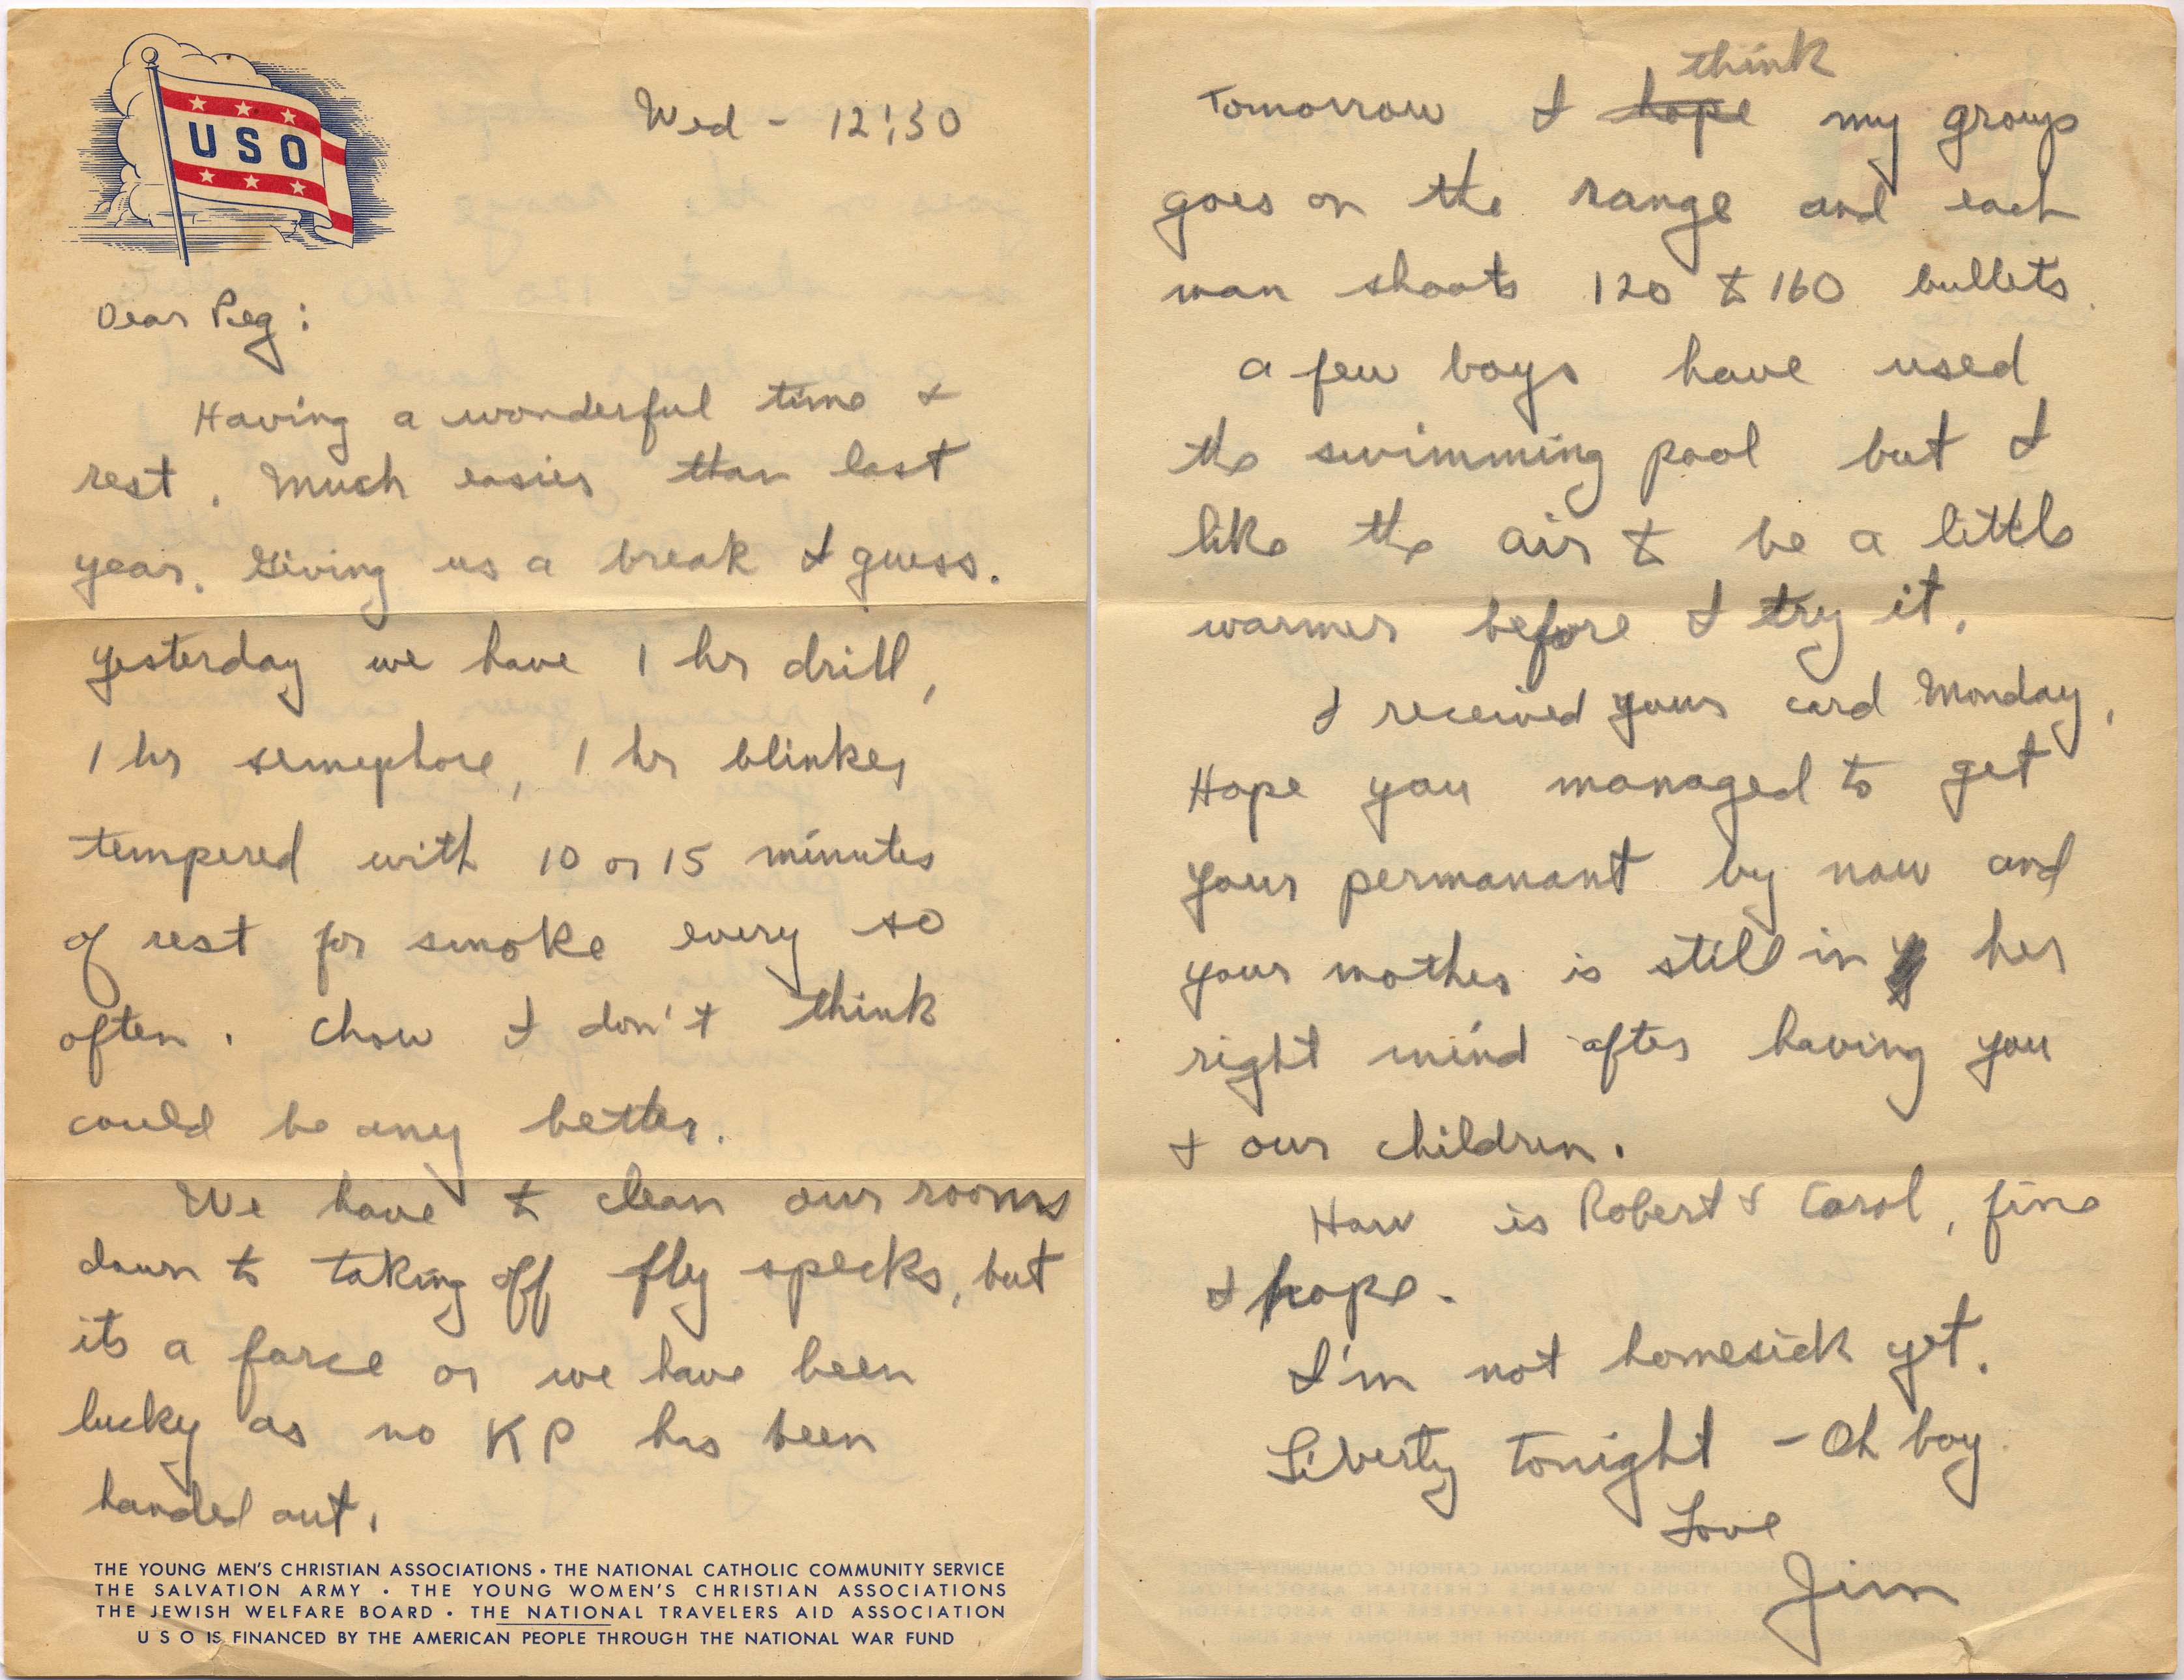 USO
Wed - 12:30
Dear Peg:
Having a wonderful time &
rest. Much easier than last
year. Giving us a break I guess.
yesterday we have 1 hr drill,
1 hr semephore, 1 hr blinker
tempered with 10 or 15 minutes
of rest for smoke every so
often. Chow I don't think
could be any better.
We have to clean our rooms
down to taking off fly specks, but
its a farce or we have been
lucky as no KP has been
handed out.
THE YOUNG MEN'S CHRISTIAN ASSOCIATIONS • THE NATIONAL CATHOLIC COMMUNITY SERVICE
THE SALVATION ARMY • THE YOUNG WOMEN'S CHRISTIAN ASSOCIATIONS
THE JEWISH WELFARE BOARD • THE NATIONAL TRAVELERS AID ASSOCIATION
USO IS FINANCED BY THE AMERICAN PEOPLE THROUGH THE NATIONAL WAR FUND
think
Tomorrow I hope my group
goes on the range and each
man shoots 120 to 160 bullets.
a few boys have used
the swimming pool but I
like the air to be a little
warmer before I try it.
I received your card Monday,
Hope you managed to get
your permanant by now and
your mother is still in her
right mind after having you
& our children.
How is Robert & Carol, fine
I hope.
I'm not homesick yet.
Liberty tonight - Oh boy
Love
Jim